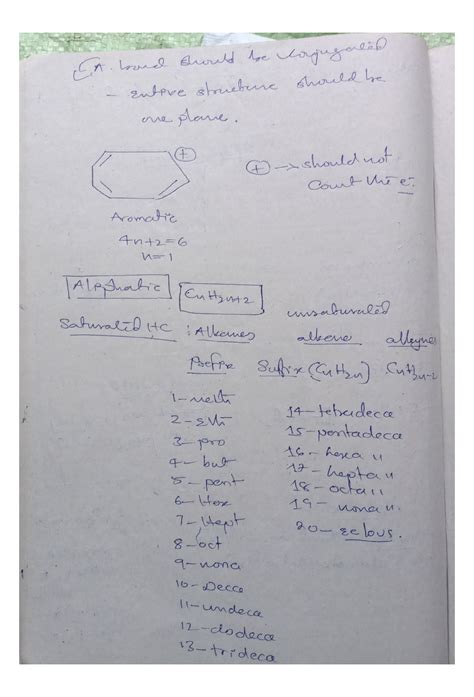 A. bond should be conjugated
- entire structure should be
one plane.
+
+ → should not
Count the e.
Aromatic
4n+2=6
n=1
Aliphatic
CnH2n+2
unsaturated
Saturated HC : Alkanes
alkene
alkyne
Prefix
Suffix (CnH2n)
CnH2n-2
1-meth
2-Eth
3-pro
4-but
5-pent
6-Hex
7-Hept
8-oct
9-nona
10-Decca
11-undeca
12-dodeca
13-trideca
14-tetradeca
15-pentadeca
16-hexa "
17-hepta "
18-octa "
19-nona ".
20-